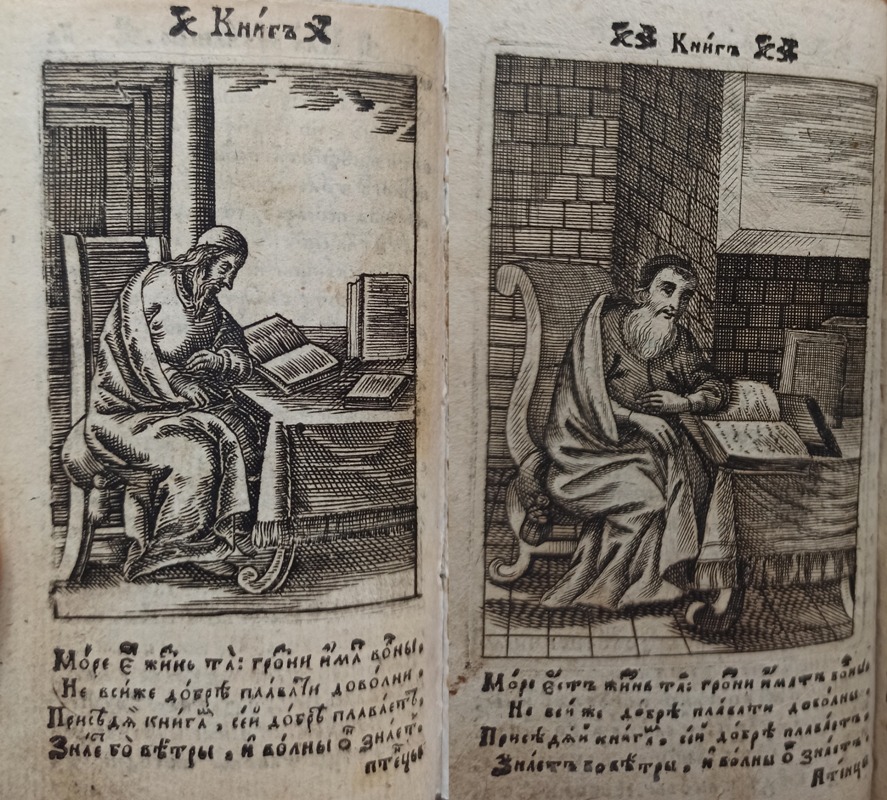 Кни́гъ
Мо́ре є҆ⷭ҇ жи́ꙁнь та̀: гро́ꙁни и҆́маⷨ во́лны,
Не вси́же до́брѣ пла́вати дово́лни.
Присѣдѧ́й кни́гаⷨ, се́й до́брѣ пла́ваетъ,
Зна́еⷮ бо вѣ́тры, и҆ во́лны ѿ зна́етъ.
пте́нцы
Кни́гъ
Мо́ре є҆́стъ жи́ꙁнь та̀: гро́ꙁни и҆́матъ во́лны
Не вси́ же до́брѣ пла́вати дово́лни.
Присѣдѧ́й кни́гаⷨ, се́й до́брѣ пла́ваетъ,
Зна́етъ бо вѣ́тры, и҆ во́лны ѿ зна́етъ.
Пте́нцы